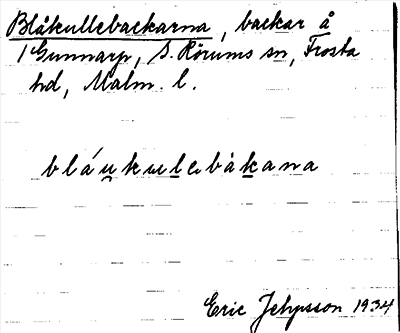 Blåkullebackarna, backar å
1 Gunnarp, S. Rörums sn, Frosta
hd, Malm. l.
bláukulebàkana
Eric Jehpsson 1934